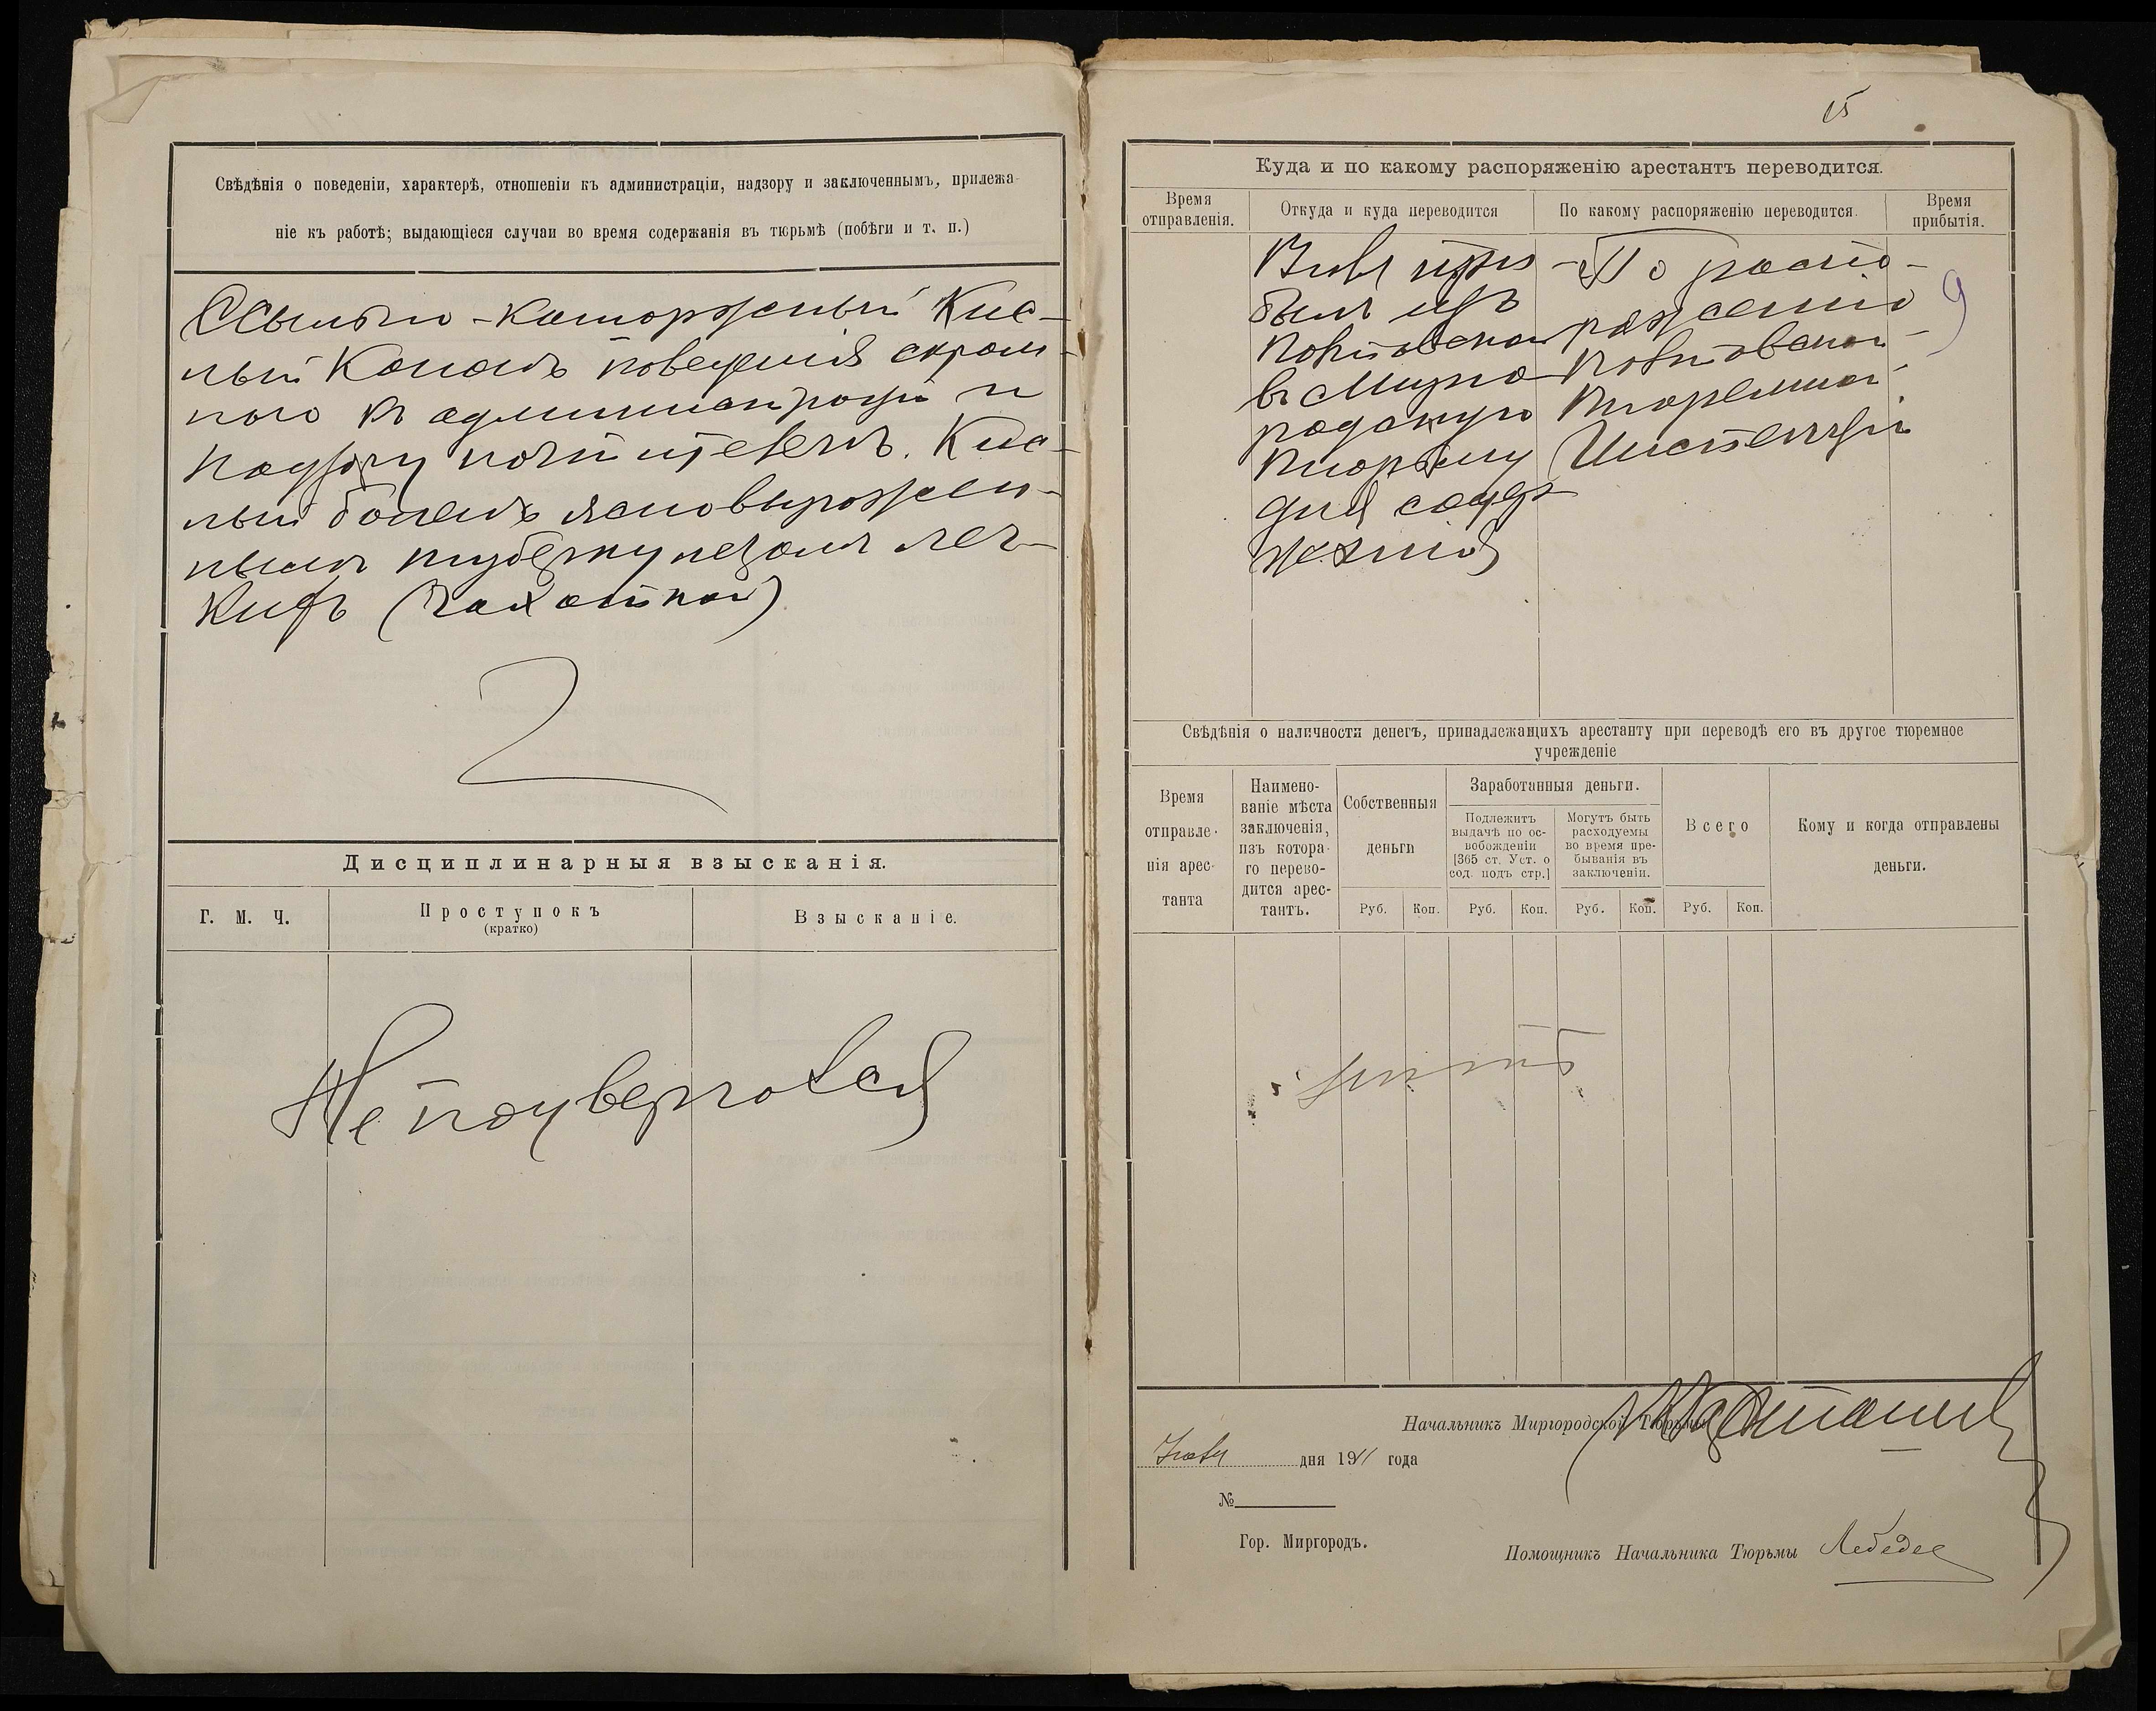 Свѣдѣнія о поведеніи, характерѣ, отношеніи къ администраціи, надзору и заключеннымъ, прилежа-
ніе къ работѣ; выдающіеся случаи во время содержанія въ тюрьмѣ (побѣги и т. п.)
Ссыльно-каторжный Кис-
лый Кононъ поведенія скром-
ного къ администраціи и
надзору почтителенъ. Кис-
лый боленъ ясно выражен-
нымъ туберкулезомъ лег-
кихъ (чахоткой)
Дисциплинарныя взысканія.
Г. М. Ч.
Проступокъ
(кратко)
Взысканіе.
Не подвергался
15
Куда и по какому распоряженію арестантъ переводится.
Время
отправленія.
Откуда и куда переводится
По какому распоряженію переводится.
Время
прибытія.
при-
былъ изъ
Полтавской
въ Мирго-
родскую
тюрьму
для содер-
жанія
По распо-
ряженію
Полтавской
Тюремной
Инспекціи
9
Свѣдѣнія о наличности денегъ, принадлежащихъ арестанту при переводѣ его въ другое тюремное
учрежденіе
Время
отправле-
нія арес-
танта
Наимено-
ваніе мѣста
заключенія,
изъ котора-
го перево-
дится арес-
тантъ.
Собственныя
деньги
Заработанныя деньги.
Подлежитъ
выдачѣ по ос-
вобожденіи
[365 ст. Уст. о
сод. подъ стр.]
Могутъ быть
расходуемы
во время пре-
быванія въ
заключеніи.
Всего
Кому и когда отправлены
деньги.
Руб. Коп. Руб. Коп. Руб. Коп. Руб. Коп.
Начальникъ Миргородской Тюрьмы
дня 1911 года
№
Гор. Миргородъ.
Помощникъ Начальника Тюрьмы Лебедев